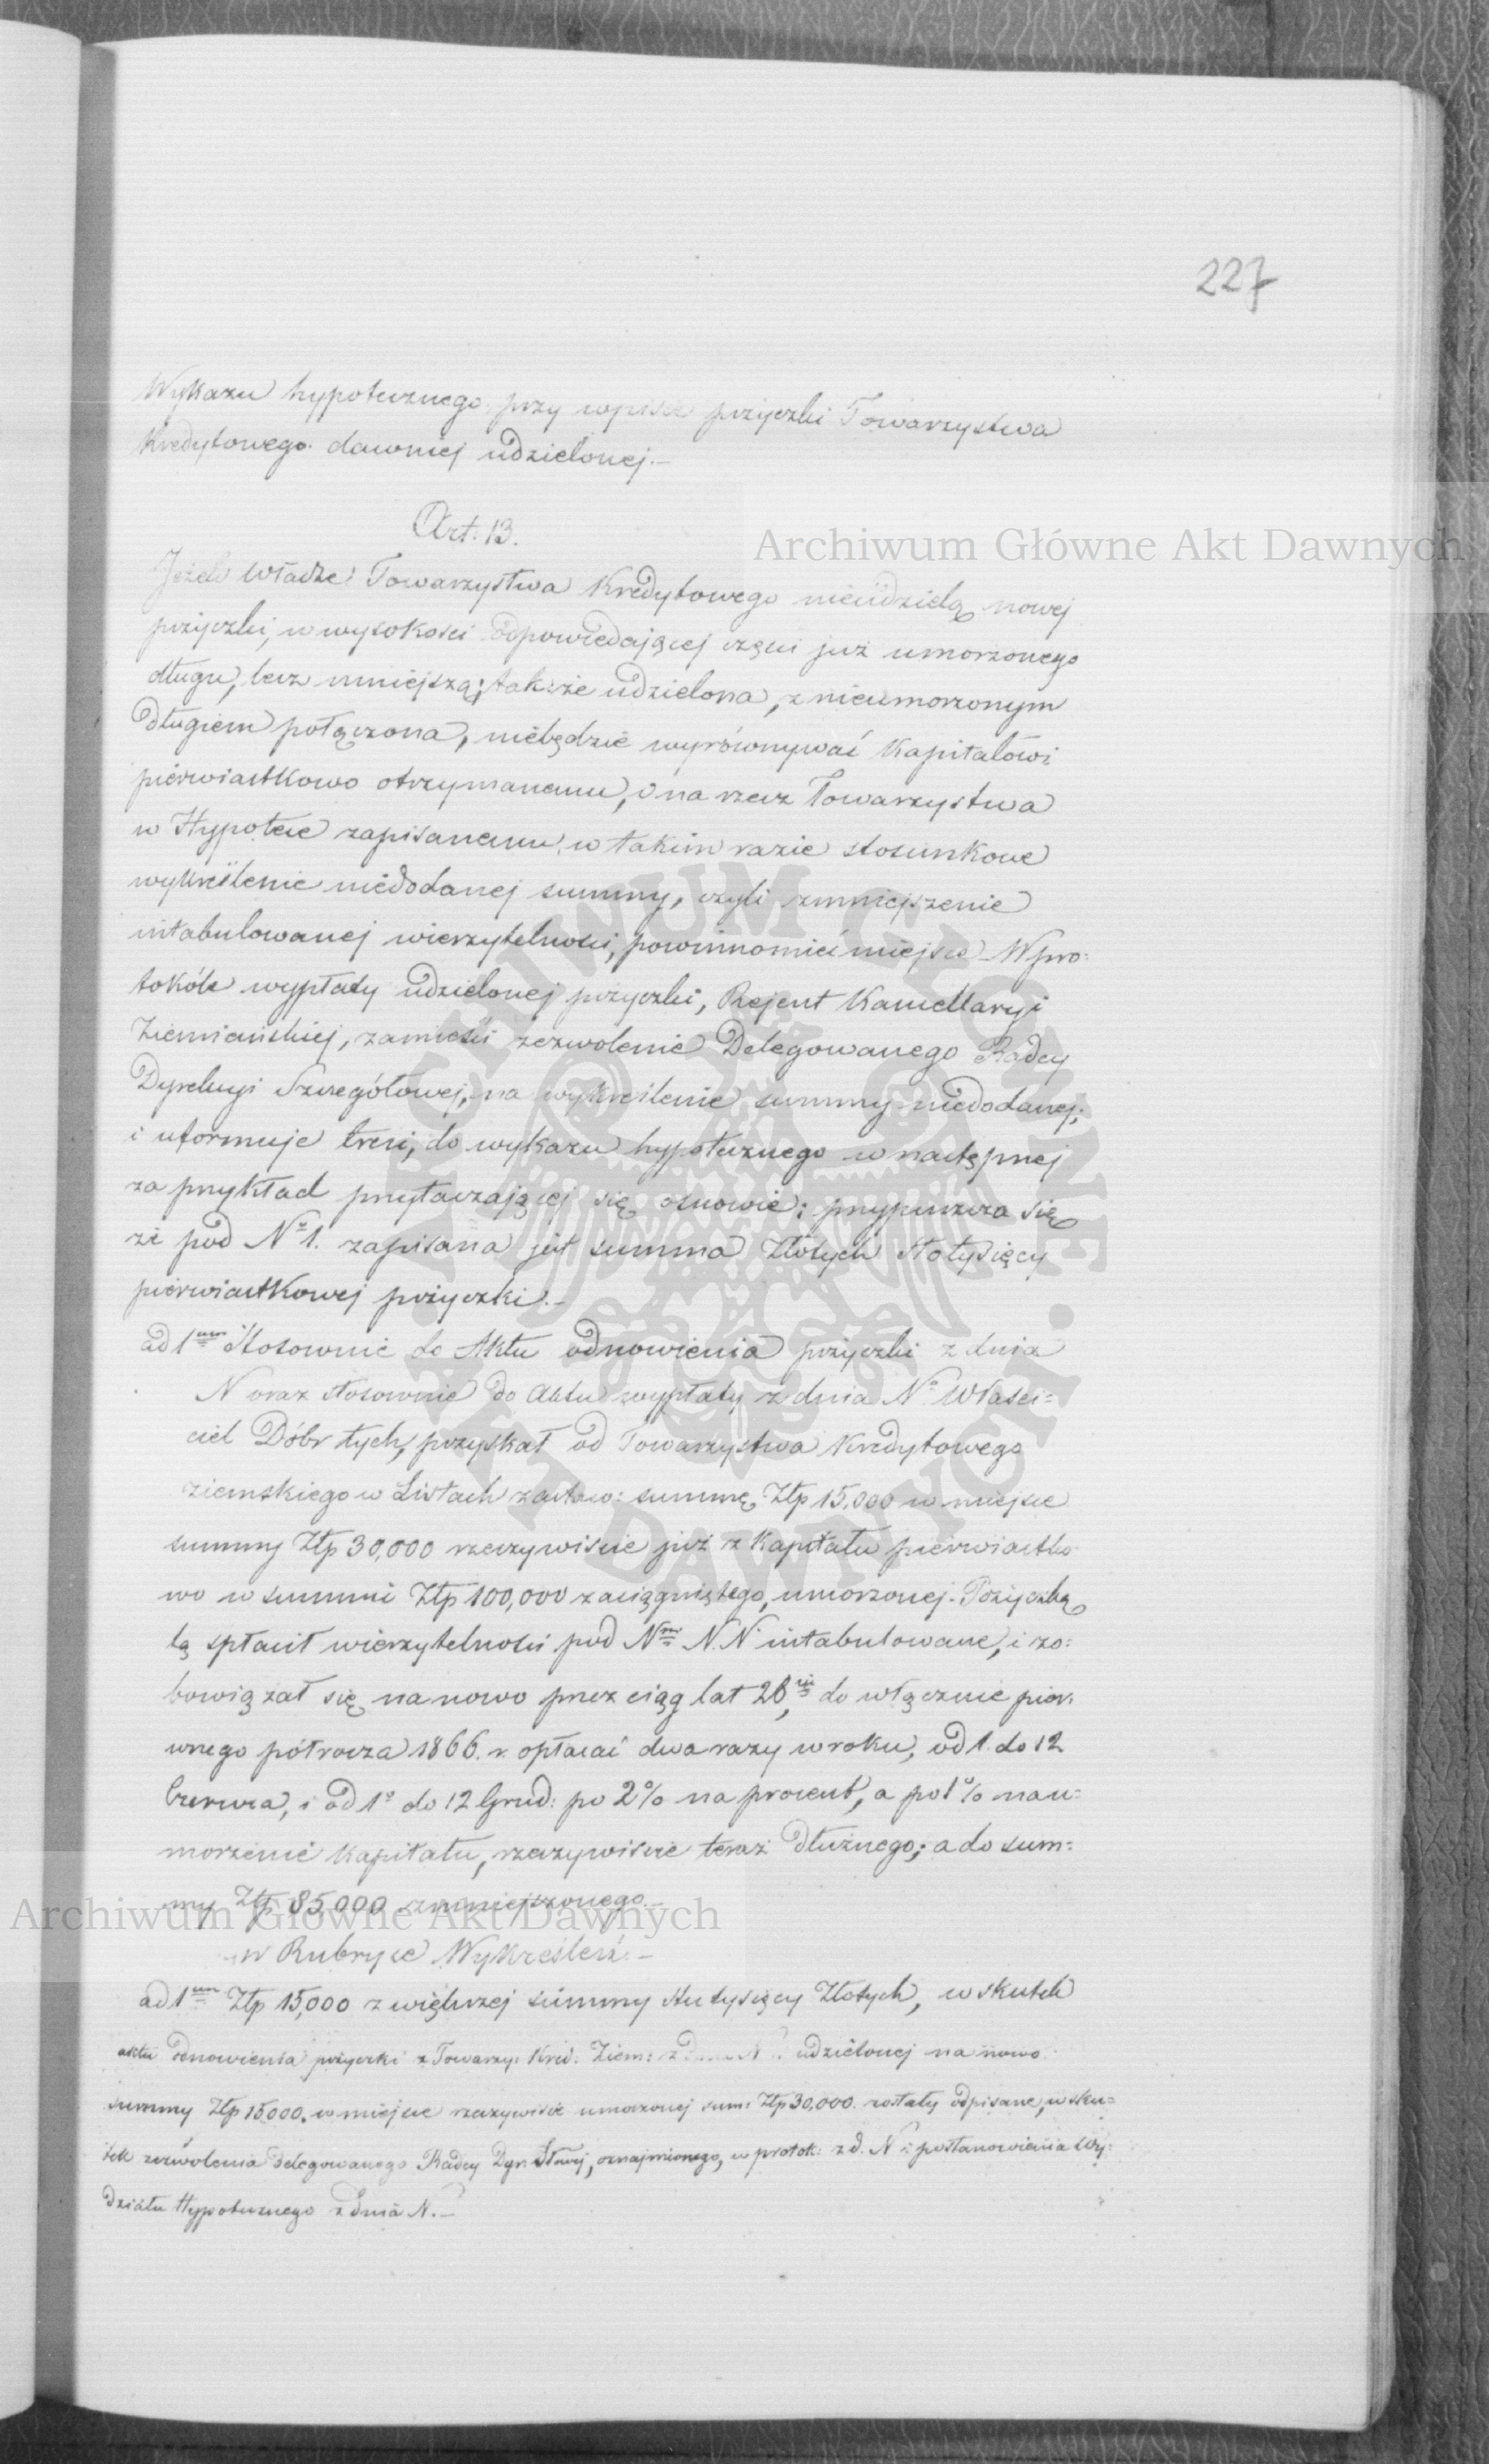 227
Wykazu hypotecznego przy wpisie pożyczki Towarzystwa
Kredytowego dawniej udzielonej.—
Art: 13.
Jeżeli Władze Towarzystwa Kredytowego nieudzielą nowej
pożyczki, w wysokości odpowiedającej części już umorzonego
długu, lecz mniejszą; tak że udzielona, z nieumorzonym
długiem połączona, niebędzie wyrównywać Kapitałowi
pierwiastkowo otrzymanemu, i na rzecz Towarzystwa
w Hypotece zapisanemu, w takim razie stosunkowe
wykreślenie niedodanej summy, czyli zmniejszenie
intabulowanej wierzytelności, powinno mieć miejsce – W pro:
tokóle wypłaty udzielonej pożyczki, Rejent Kancellaryi
Ziemiańskiej, zamieści zezwolenie Delegowanego Radcy
Dyrekcyi Szczegółowej, na wykreślenie summy niedodanej;
i uformuje treści, do wykazu hypotecznego w następnej
za przykład przytaczającej się osnowie: przypuszcza się
że pod N° 1. zapisana jest summa Złotych stotysięcy
pierwiastkowej pożyczki.—
ad 1um Stosownie do Aktu odnowienia pożyczki z dnia
N oraz stosownie do Aktu wypłaty z dnia N° Właści=
ciel Dóbr tych, pozyskał od Towarzystwa Kredytowego
ziemskiego w Listach zastaw: summę Złp 15,000 w miejsce
summy Złp 30,000 rzeczywiście już z Kapitału pierwiastko
wo w summie Złp 100,000 zaciągniętego, umorzonej. Pożyczką
tą spłacił wierzytelności pod Nm N. N. intabulowane, i zo:
bowiązał się na nowo przez ciąg lat 28, do włącznie pier:
wszego półrocza 1866. r. opłacać dwa razy w roku, od 1. do 12
Czerwca, i od 1° do 12 Grud: po 2% na procent, a po 1% na u=
morzenie Kapitału, rzeczywiście teraz dłużnego; a do sum:
my Złp 85,000 zmniejszonego.—
w Rubryce Wykreśleń.—
ad 1um Złp 15,000 z większej summy stutysięcy Złotych, w skutek
aktu odnowienia pożyczki z Towarzy: Kred: Ziem: z N udzielonej na nowo
summy Złp 15000. w miejsce rzeczywiście umorzonej sum: Złp 30,000. zostały odpisane, w sku=
tek zezwolenia delegowanego Radcy Dyr: Słowej, oznajmionego, w protok: z d. N i postanowienia Wy:
działu Hypotecznego z dnia N.—
Archiwum Główne Akt Dawnych
Archiwum Główne Akt Dawnych
ARCHIWUM GŁÓWNE AKT DAWNYCH